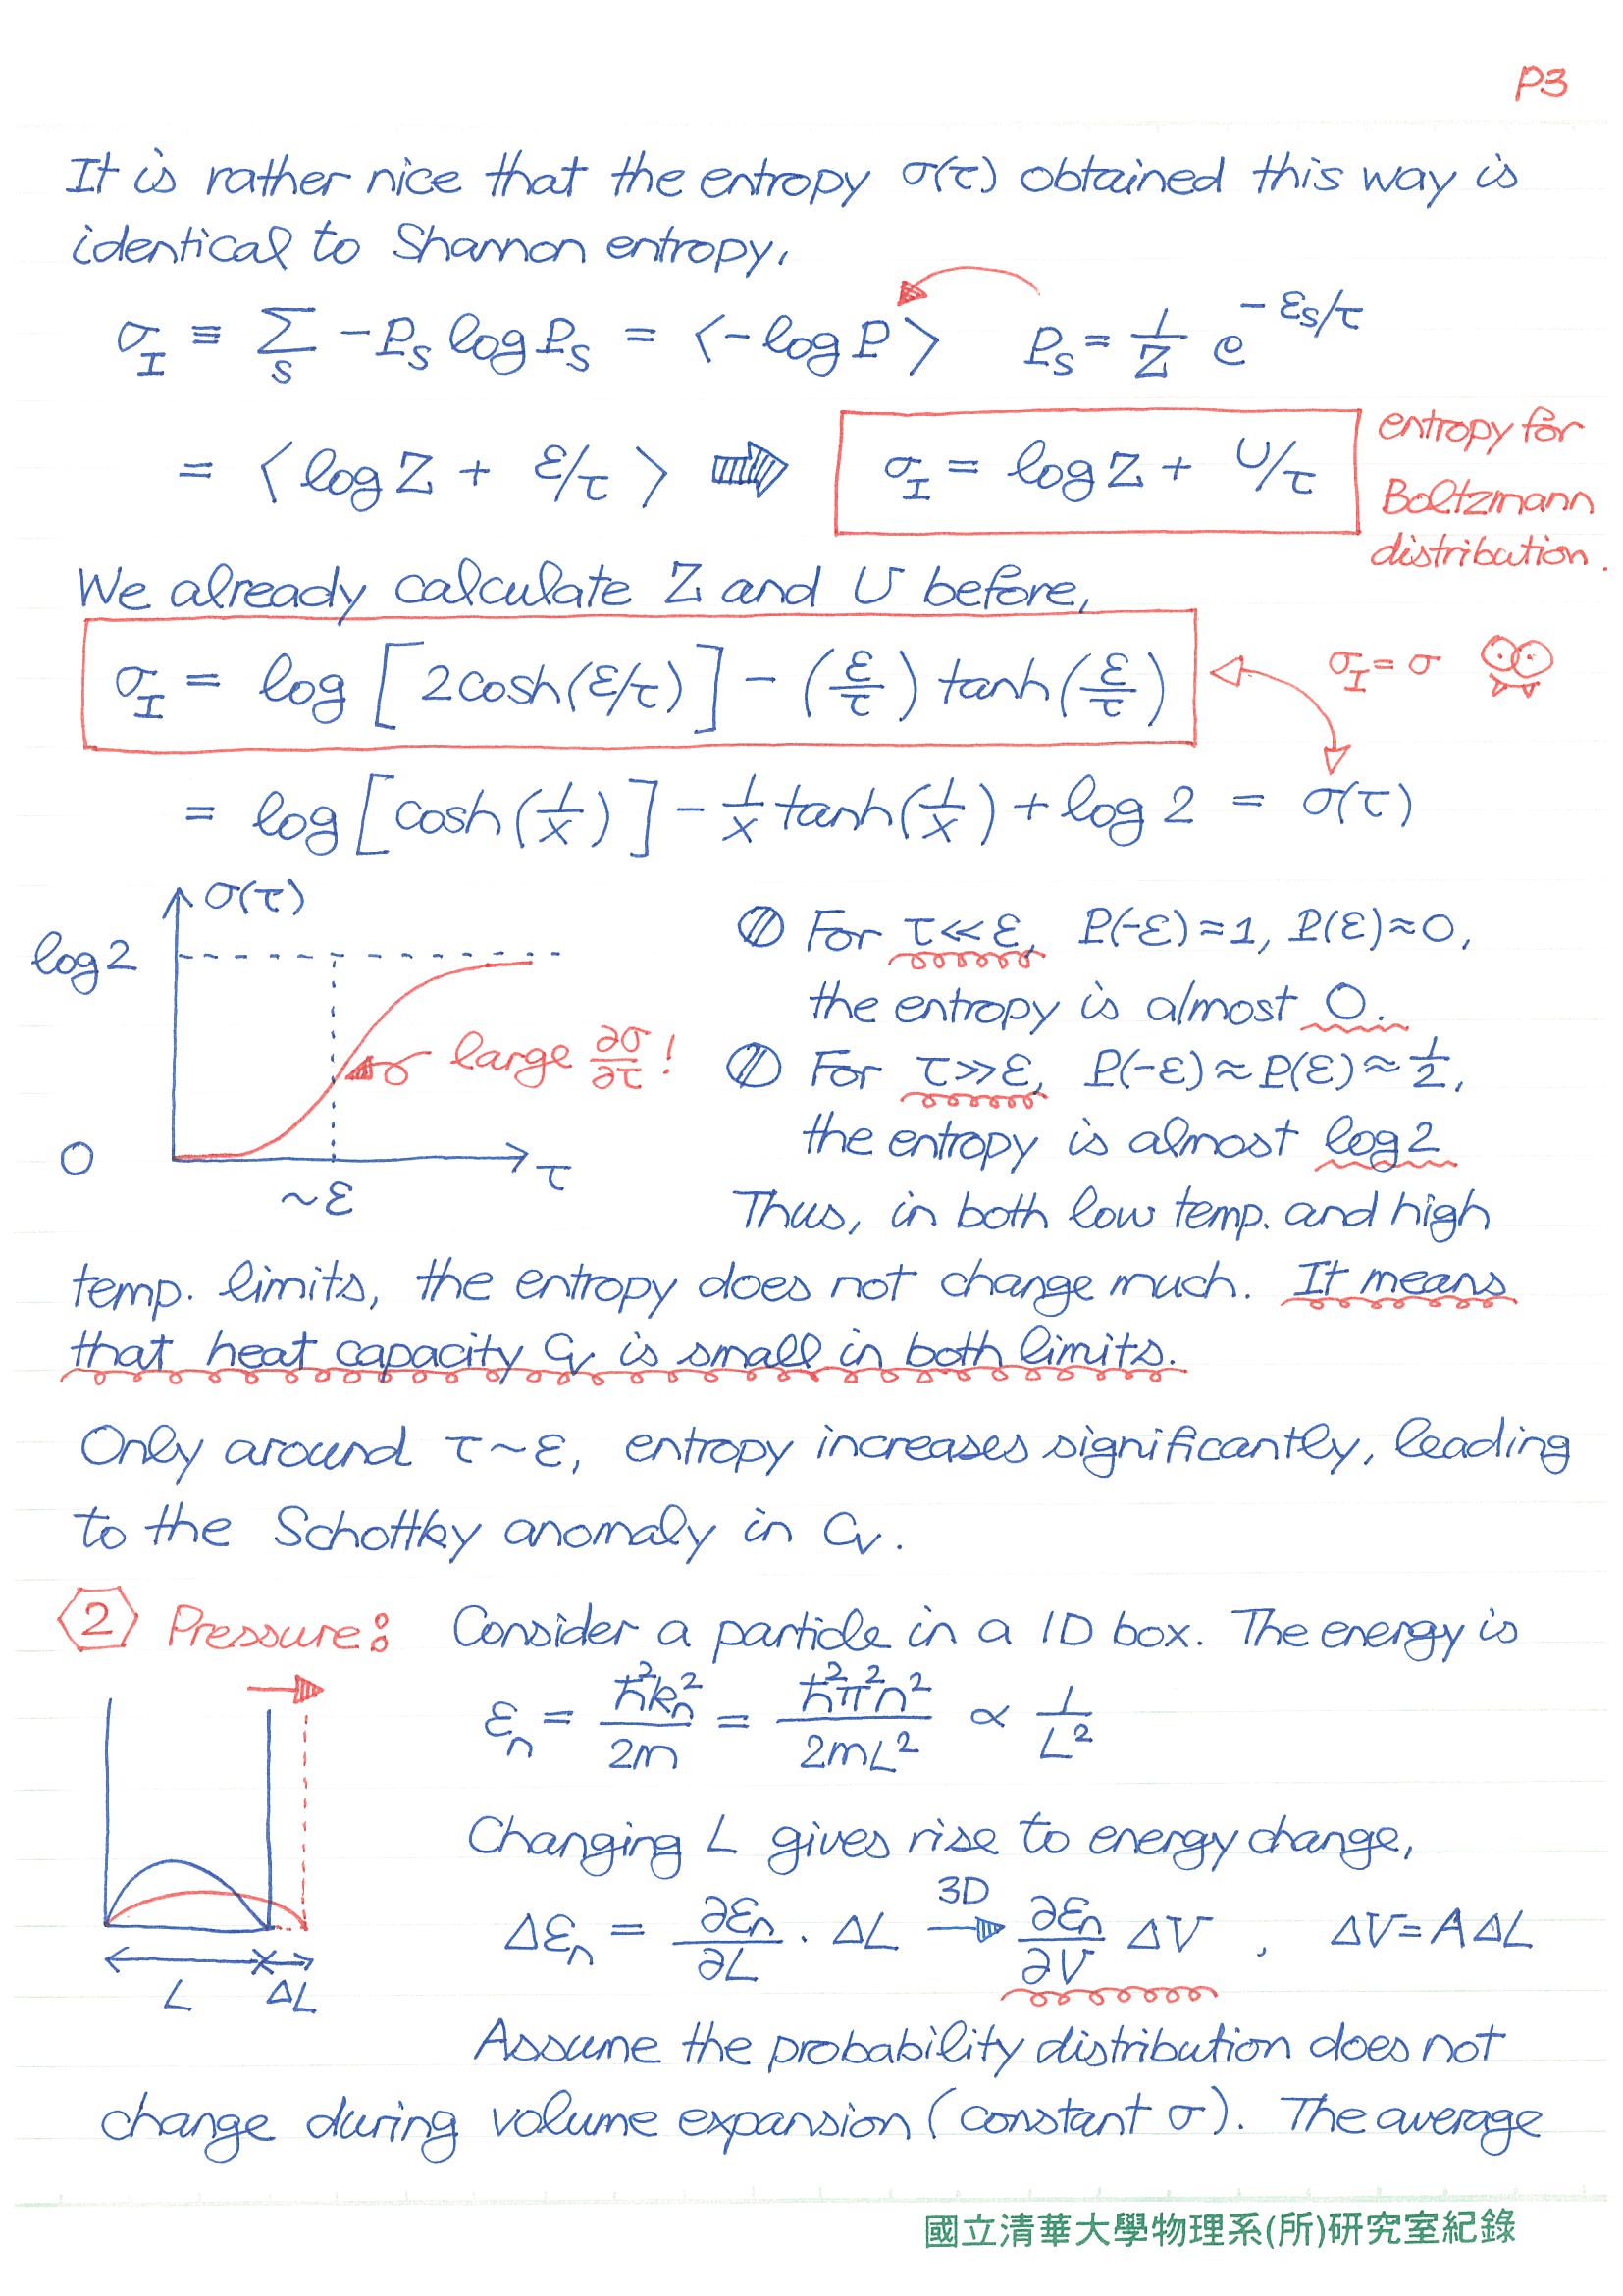 P3
It is rather nice that the entropy σ(τ) obtained this way is
identical to Shannon entropy,
σ_I ≡ Σ_s -P_s log P_s = ⟨-log P⟩ P_s = 1/Z e^{-ε_s/τ}
= ⟨log Z + ε/τ⟩ ⇒ σ_I = log Z + U/τ
entropy for
Boltzmann
distribution.
We already calculate Z and U before,
σ_I = log [2cosh(ε/τ)] - (ε/τ) tanh(ε/τ)
σ_I = σ
= log [cosh(1/x)] - 1/x tanh(1/x) + log 2 = σ(τ)
σ(τ)
log 2
large ∂σ/∂τ !
0
τ
~ε
For τ≪ε, P(-ε)≈1, P(ε)≈0,
the entropy is almost 0.
For τ≫ε, P(-ε)≈P(ε)≈1/2,
the entropy is almost log 2
Thus, in both low temp. and high
temp. limits, the entropy does not change much. It means
that heat capacity C_V is small in both limits.
Only around τ~ε, entropy increases significantly, leading
to the Schottky anomaly in C_V.
2 Pressure: Consider a particle in a 1D box. The energy is
ε_n = ħ²k_n²/2m = ħ²π²n²/2mL² ∝ 1/L²
Changing L gives rise to energy change,
Δε_n = ∂ε_n/∂L · ΔL 3D→ ∂ε_n/∂V ΔV , ΔV = AΔL
L ΔL
Assume the probability distribution does not
change during volume expansion (constant σ). The average
國立清華大學物理系(所)研究室紀錄